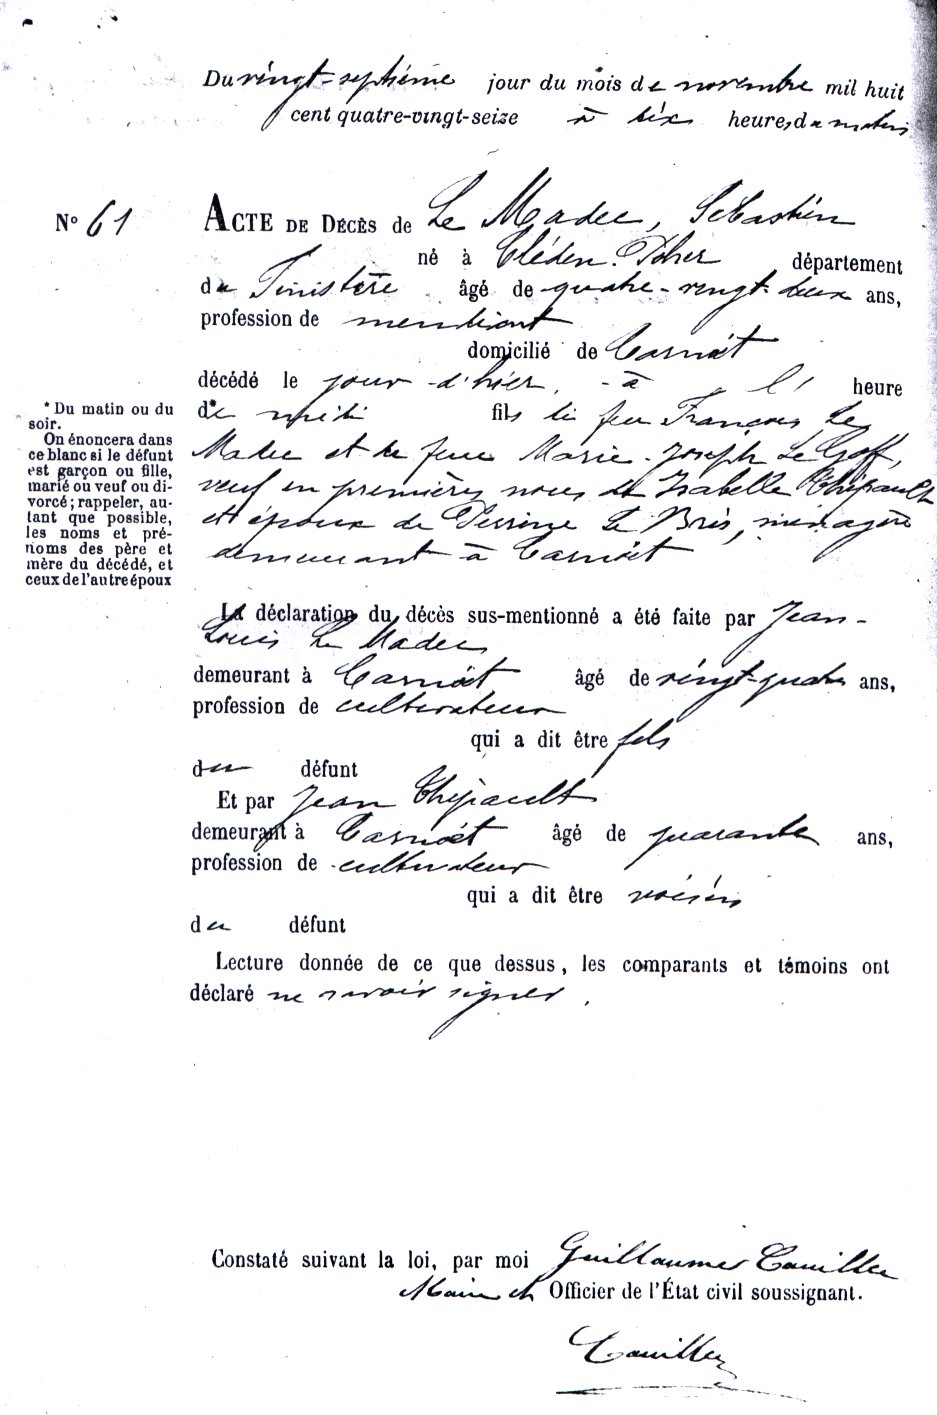 Du vingt-septième jour du mois de novembre mil huit
cent quatre-vingt-seize à dix heures du matin
N° 61
ACTE DE DÉCÈS de Le Madec, Sébastien
né à Cléden-Poher département
du Finistère âgé de quatre-vingt-deux ans,
profession de mendiant
domicilié de Carnoët
décédé le jour d'hier, à l' heure
de midi fils de feu François Le
Madec et de feue Marie-Joseph Le Goff,
veuf en premières noces de Isabelle Thépault
et époux de Perrine Le Bris, ménagère
demeurant à Carnoët
* Du matin ou du
soir.
On énoncera dans
ce blanc si le défunt
est garçon ou fille,
marié ou veuf ou di-
vorcé ; rappeler, au-
tant que possible,
les noms et pré-
noms des père et
mère du décédé, et
ceux de l'autre époux
La déclaration du décès sus-mentionné a été faite par Jean-
Louis Le Madec
demeurant à Carnoët âgé de vingt-quatre ans,
profession de cultivateur
qui a dit être fils
du défunt
Et par Jean Thépault
demeurant à Carnoët âgé de quarante ans,
profession de cultivateur
qui a dit être voisin
du défunt
Lecture donnée de ce que dessus, les comparants et témoins ont
déclaré ne savoir signer.
Constaté suivant la loi, par moi Guillaume
Maire et Officier de l'État civil soussignant.